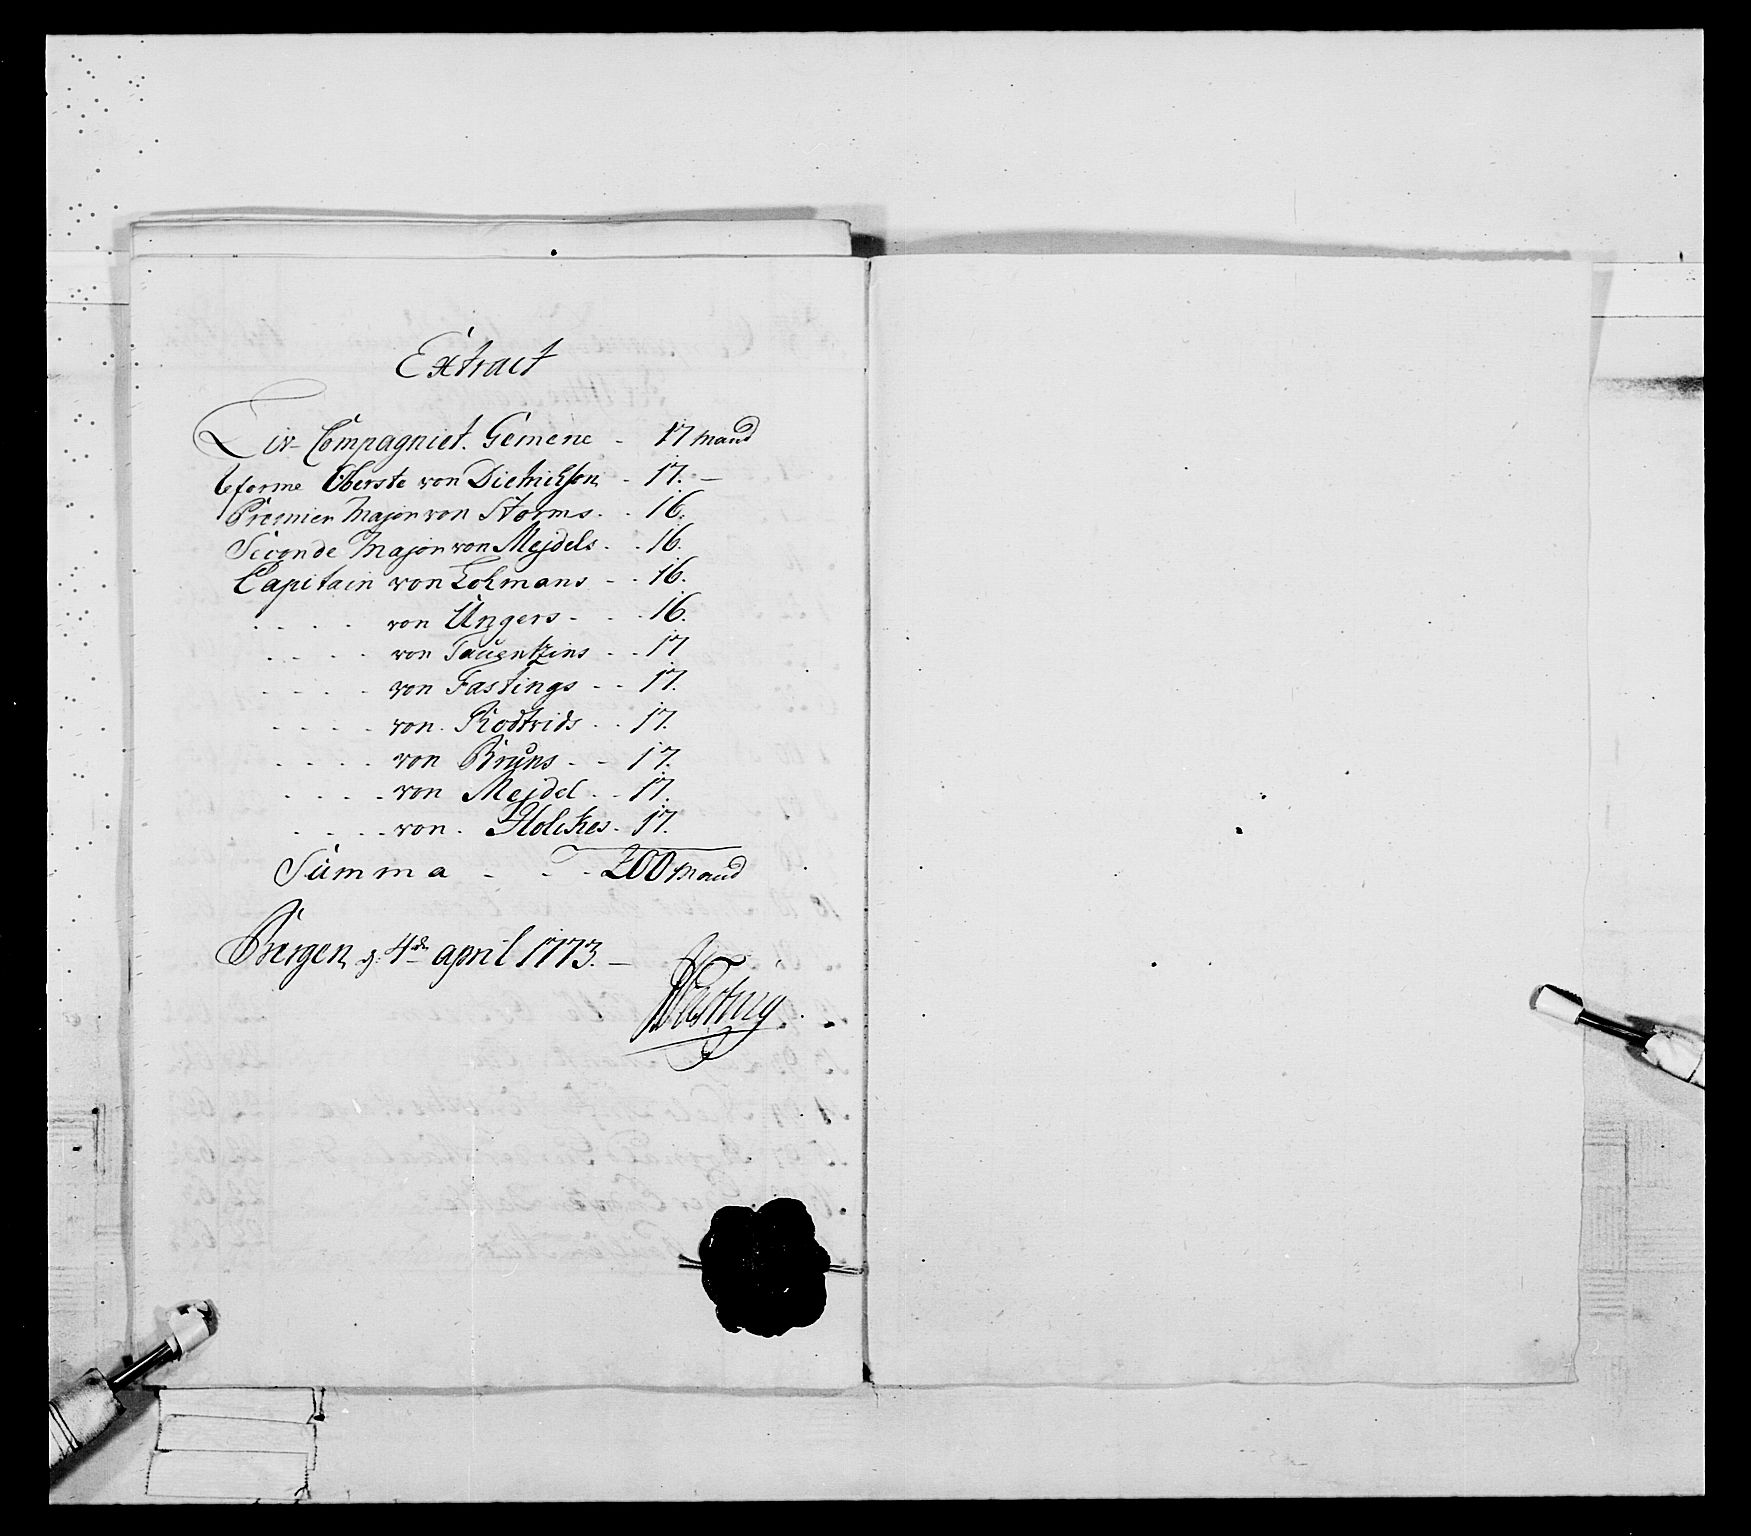 Extract
Liv-Compagniet. Gemene - 17 mand
Oberste von Dietrichson - 17. -
Premier Major von Storms. . 16.
Seconde Major von Mejdels. . 16.
Capitain von Lohmans - . 16.
. . . . von Ungers - . . 16.
. . . . von Tauentzins . . 17
. . . . von Fastings - - 17.
. . . . von. Rodtvids . . 17.
. . . . von Bruns . - 17.
. . . . von Mejdel . . 17.
. . . . von. Holckes. 17.
Summa - - - 200 mand
Bergen d: 4de april 1773. -